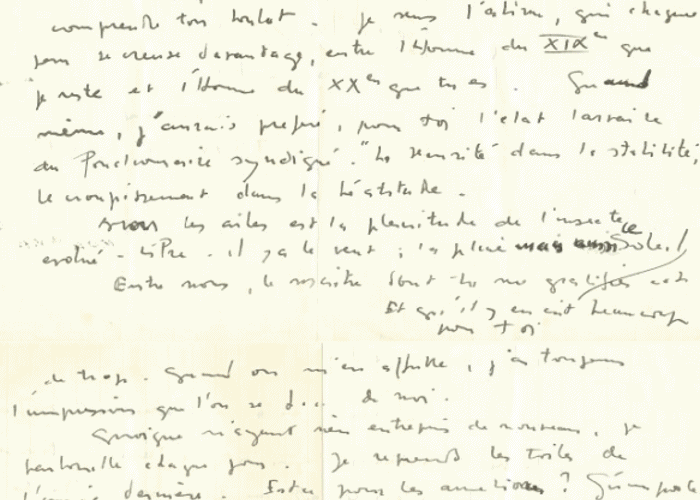 comprendre ton boulot. je sens l'abîme, qui chaque
jour se creuse davantage, entre l'Homme du XIXe que
je reste et l'Homme du XXe que tu es. Quand
même, j'aurais préféré, pour toi l'état larvaire
du Fonctionnaire syndiqué. La sécurité dans la stabilité,
le croupissement dans la béatitude.
les ailes est la plénitude de l'insecte
évolué. libre. il y a le vent ; la pluie mais aussi le Soleil
Entre nous, le dont tu me gratifies est
Et qu'il y en ait beaucoup
pour toi
de trop. Quand on m'en affuble, j'ai toujours
l'impression que l'on se de moi.
Quoique n'ayant rien entrepris de nouveau, je
chaque jour. Je reprends les toiles de
l'année dernière. Est-ce pour les améliorer ? Qu'importe